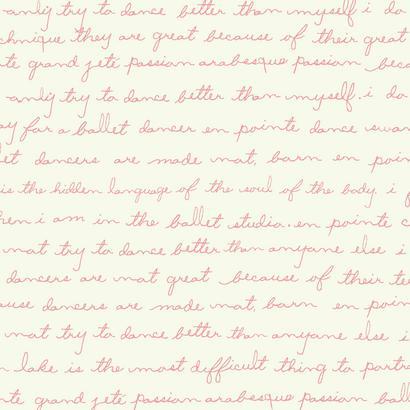 only try to dance better than myself. i do
chnique they are great because of their great
te grand jeté passion arabesque passion beca
only try to dance better than myself. i do
ay for a ballet dancer en pointe dance swan
let dancers are made not, born en poin
is the hidden language of the soul of the body. i
hen i am in the ballet studio. en pointe c
not try to dance better than anyone else i
dancers are not great because of their te
ause dancers are made not, born en poin
not try to dance better than anyone else i
n lake is the most difficult thing to portra
te grand jeté passion arabesque passion ball